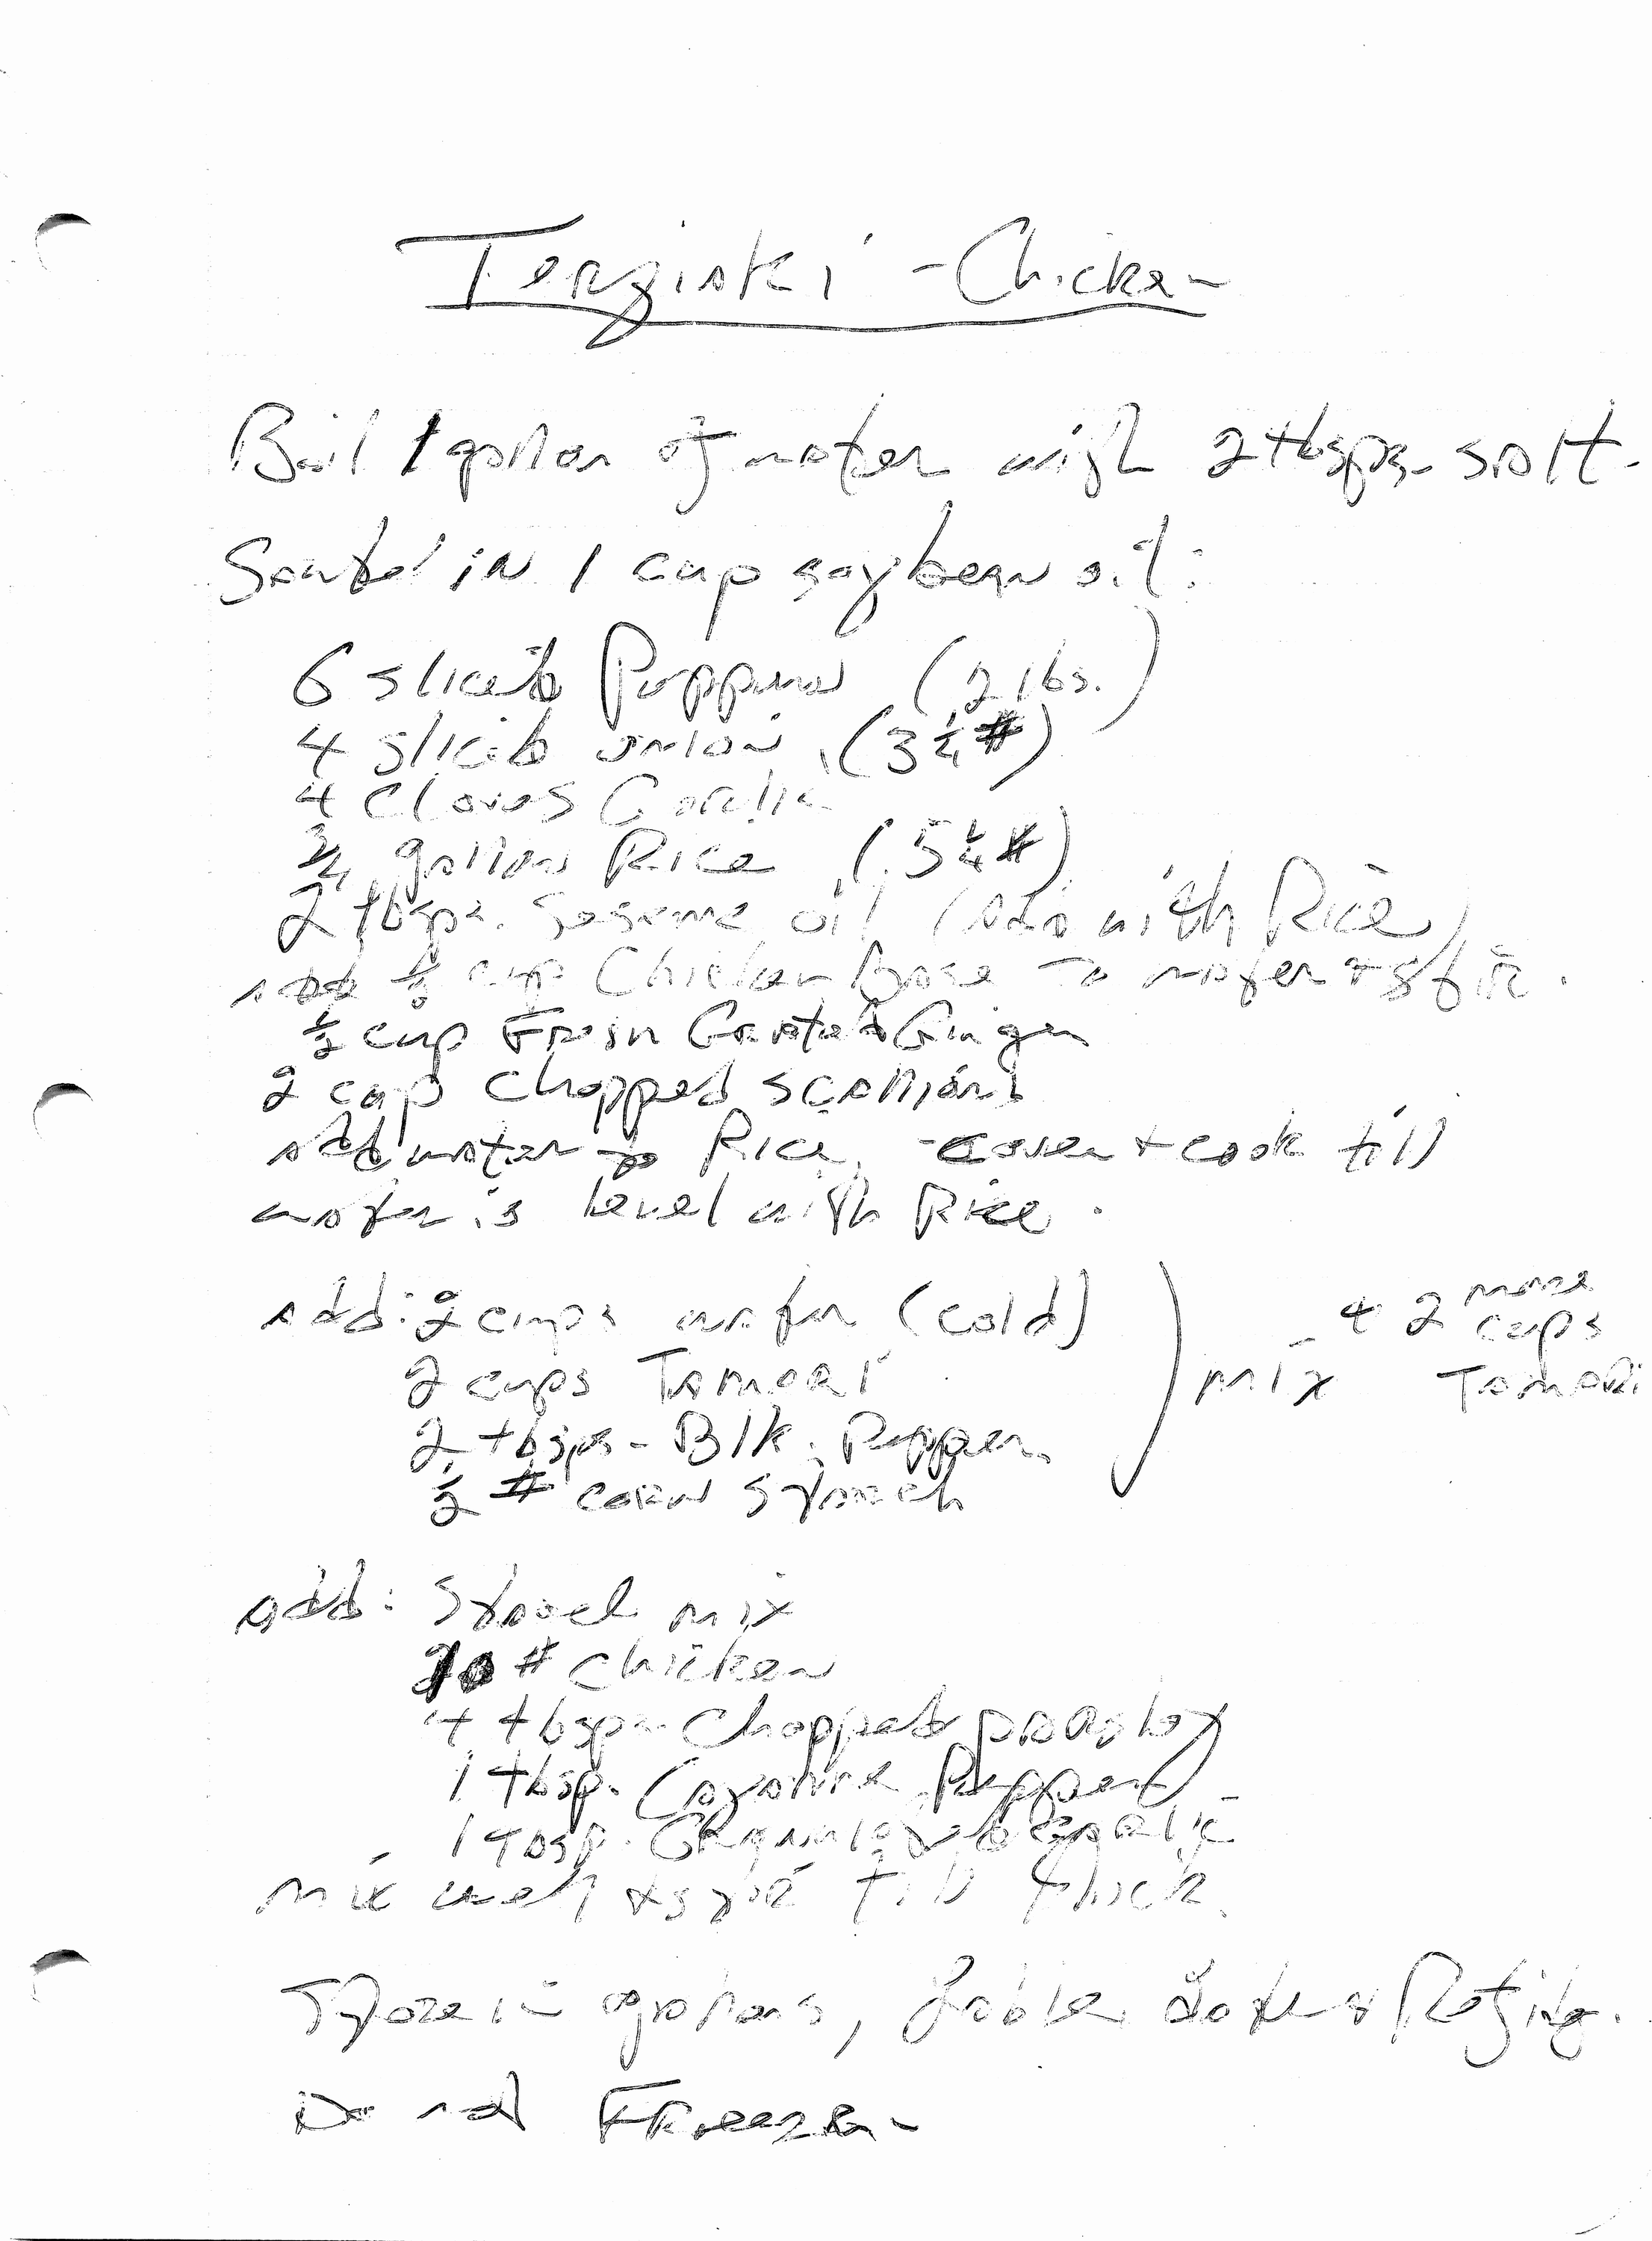 Teryiaki - Chicken
Boil 1 gallon of water with 2 tbsps. salt.
Sauté in 1 cup soybean oil:
6 sliced Peppers (2 lbs.)
4 sliced onion (3 1/4 #)
4 Cloves Garlic
3/4 gallon Rice (5 1/4 #)
2 tbsps. Sesame oil (add with Rice)
add 1/2 cup Chicken Base to water & stir.
1/2 cup Fresh Grated Ginger
2 cup chopped scallions
add water to Rice, - cover & cook till
water is level with Rice.
add: 2 cups water (cold)
2 cups Tamari
2 tbsps - Blk. Pepper
1/2 # corn starch
mix
& 2 more
cups
Tamari
add: Starch mix
# chicken
4 tbsps. Chopped parsley
1 tbsp. Cayanne Pepper
1 tbsp. Granulated Garlic
mix well & stir till thick.
Store in gallons, Lable, Date & Refrig.
Do not Freeze -